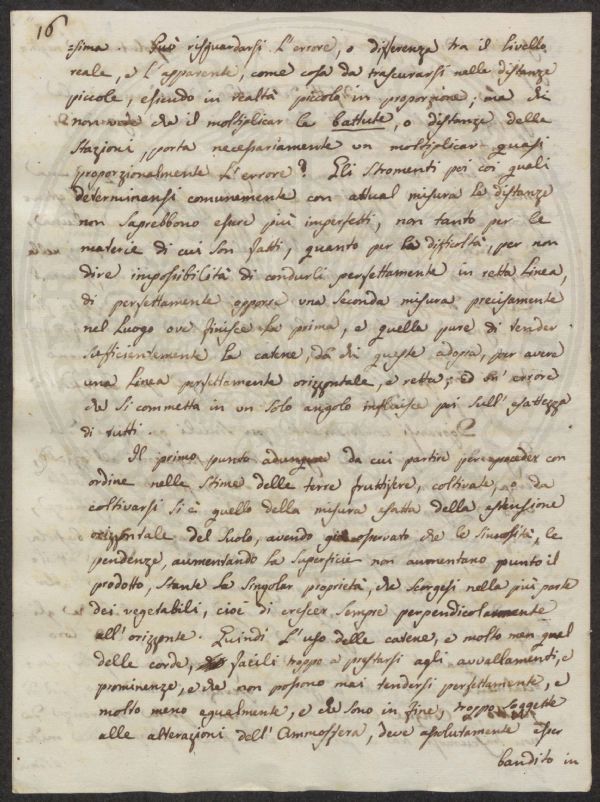 16
:sima. Può risguardarsi l'errore, o differenza tra il livello
reale, e l'apparente, come cosa da trascurarsi nelle distanze
piccole, essendo in realtà piccolo in proporzione; ma chi
non vede che il moltiplicar le battute, o distanze delle
Stazioni, porta necessariamente un moltiplicar quasi
proporzionalmente l'errore? Gli Stromenti poi coi quali
determinansi comunemente con attual misura le distanze
non saprebbono essere più imperfetti, non tanto per le
materie di cui son fatti, quanto per la difficoltà, per non
dire impossibilità di condurli perfettamente in retta Linea,
di perfettamente apporre una seconda misura precisamente
nel Luogo ove finisce la prima, e quella pure di tender
sufficientemente la catene, da chi queste adopra, per avere
una Linea perfettamente orizzontale, e retta; ed un' errore
che si commetta in un solo angolo influisce poi sull' esattezza
di tutti.
Il primo punto adunque da cui partire per proceder con
ordine nelle Stime delle terre fruttifere, coltivate, o da
coltivarsi si è quello della misura esatta della estensione
orizzontale del Suolo, avendo già osservato che le sinuosità, le
pendenze, aumentando la superficie non aumentano punto il
prodotto, stante la singolar proprietà, che scorgesi nella più parte
dei vegetabili, cioè di crescer sempre perpendicolarmente
all' orizzonte. Quindi l'uso delle catene, e molto men quel
delle corde, facili troppo a prestarsi agli avvallamenti, e
prominenze, e che non possono mai tendersi perfettamente, e
molto meno egualmente, e che sono in fine, troppo soggette
alle alterazioni dell' Ammosfera, deve assolutamente esser
bandito in